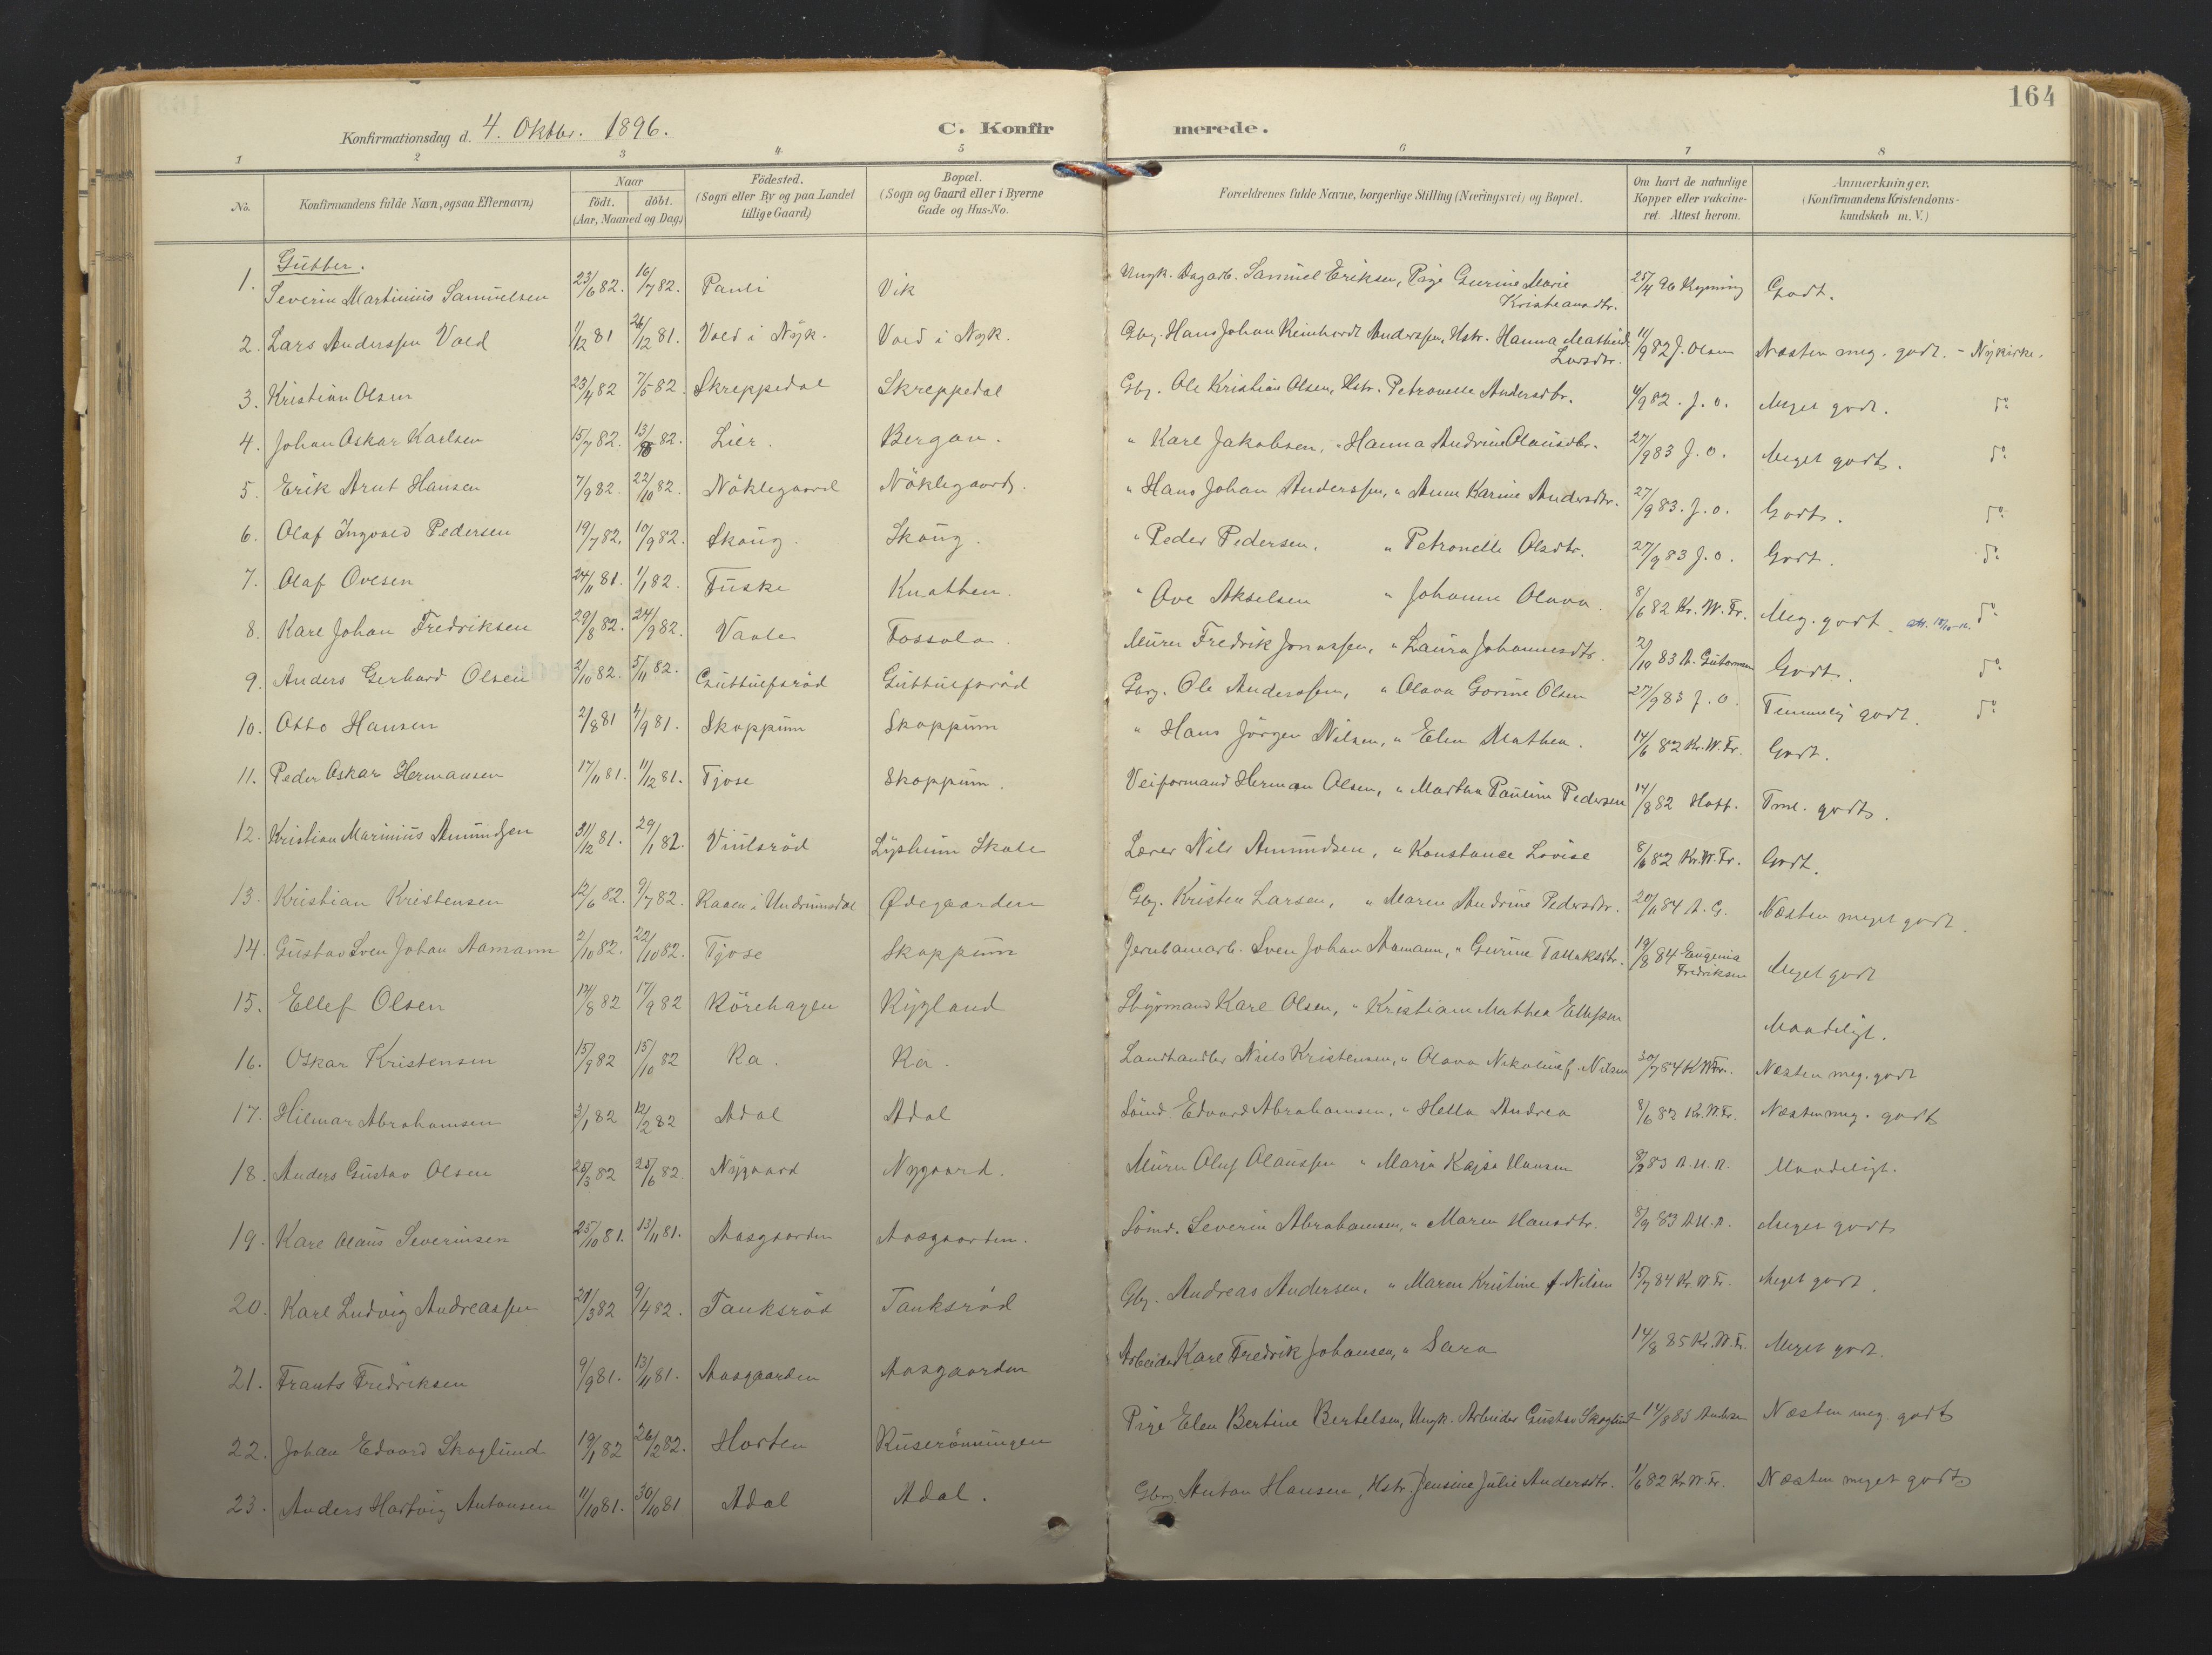 164
Konfirmationsdag d. 4. Oktbr. 1896. C. Konfirmerede.
1 2 3 4 5 6 7 8
No. Konfirmandens fulde Navn, ogsaa Efternavn) Naar födt. döbt. (Aar, Maaned og Dag) Födested. (Sogn eller By og paa Landet tillige Gaard) Bopæl. (Sogn og Gaard eller i Byerne Gade og Hus-No. Forældrenes fulde Navne, borgerlige Stilling (Næringsvei) og Bopæl. Om havt de naturlige Kopper eller vakcineret. Attest herom. Anmærkninger. (Konfirmandens Kristendomskundskab m. V.)
Gutter.
1. Severin Martinius Samuelsen 23/6 82. 16/7 82. Pauli Vik Ungk. Dagarb. Samuel Eriksen, Pige Gurine Marie Kristiansdtr. 25/4 96 Godt.
2. Lars Anderssen Vold 1/12 81 26/12 81. Vold i Nyk. Vold i Nyk. Gbg. Hans Johan Reinhardt Anderssen, Hstr. Hanna Mathilde Larsdtr. 11/9 82 J. Olsen Næsten meg. godt. - Nykirke.
3. Kristian Olsen 23/4 82 7/5 82. Skreppedal Skreppedal Gbg. Ole Kristian Olsen, Hstr. Petronelle Andersdtr. 4/9 82. J. O. Meget godt. do
4. Johan Oskar Karlsen 15/7 82. 13/ 82. Lier. Bergan. " Karl Jakobsen, " Hanna Andrine Olausdtr. 27/9 83 J. O. Meget godt. do
5. Erik Arnt Hansen 7/9 82. 22/10 82. Nöklegaard Nöklegaard. " Hans Johan Anderssen, " Anne Karine Andersdtr. 27/9 83. J. O. Godt. do
6. Olaf Ingvald Pedersen 19/7 82. 17/9 82. Skoug. Skoug. " Peder Pedersen, " Petronelle Olsdtr. 27/9 83 J. O. Godt. do
7. Olaf Ovesen 24/11 81. 1/1 82. Fuske Knatten. " Ove Akselsen " Johanne Olava. 8/6 82 Kr. W. Fr. Meg. godt. do
8. Karl Johan Fredriksen 29/8 82. 24/9 82. Vaale Fossola. Murer Fredrik Jonassen, " Laura Johannesdtr. 2/10 83 A. Gutormsen Godt. do
9. Anders Gerhard Olsen 2/10 82. 5/11 82. Guttulfsröd Guttulfsröd Gbg. Ole Anderssen, " Olava Gorine Olsen 27/9 83 J. O. Temmelig godt. do
10. Otto Hansen 2/8 81 4/9 81. Skoppum Skoppum " Hans Jörgen Nilsen, " Elen Mathea. 14/6 82 Kr. W. Fr. Godt.
11. Peder Oskar Hermansen 17/11 81. 11/12 81. Tjose Skoppum. Veiformand Herman Olsen, " Martha Pauline Pedersen 14/8 82 Hoff. Tml. godt.
12. Kristian Marinius Amundsen 31/12 81. 29/1 82. Viulsröd Lysheim Skole Lærer Nils Amundsen, " Konstance Lovise 8/6 82 Kr. W. Fr. Godt.
13. Kristian Kristensen 12/6 82. 9/7 82. Raaen i Undrumsdal Ødegaarden Gbg. Kristen Larsen, " Maren Andrine Pedersdtr. 20/11 84 A. G. Næsten meget godt.
14. Gustav Sven Johan Aamann 2/10 82. 22/10 82. Tjose Skoppum Jernbanearb. Sven Johan Aamann, " Gurine Tollaksdtr. 19/8 84 Eugenia Fredriksen Meget godt
15. Ellef Olsen 12/8 82 17/9 82 Rörehagen Rygland Styrmand Karl Olsen, " Kristiane Mathea Ellefsen Maadeligt.
16. Oskar Kristensen 15/9 82 15/10 82 Ra. Ra. Landhandler Niels Kristensen, " Olava Nikoline f. Nilsen 30/7 84 K W Fr. Næsten meg. godt
17. Hilmar Abrahamsen 3/1 82 12/2 82 Adal Adal Sömd Edvard Abrahamsen, " Hella Andrea 8/6 82 Kr. W. Fr. Næsten meg. godt
18. Anders Gustav Olsen 25/3 82 25/6 82. Nygaard Nygaard. Murer Oluf Olaussen " Marja Kajsa Hansen 83 A. H. A. Maadeligt.
19. Karl Olaus Severinsen 25/10 81. 13/11 81. Aasgaarden Aasgaarden. Sömd. Severin Abrahamsen, " Maren Hansdtr. 8/9 83 A. H. A. Meget godt
20. Karl Ludvig Andreassen 21/3 82 9/4 82. Tanksröd Tanksröd Gbg. Andreas Andersen, " Maren Kristine f. Nilsen 15/7 84 Kr. W. Fr. Meget godt.
21. Frants Fredriksen 9/9 81. 13/11 81. Aasgaarden Aasgaarden Arbeider Karl Fredrik Johansen, " Sara 14/8 85 Kr. W. Fr. Meget godt.
22. Johan Edvard Skoglund 19/1 82 26/2 82. Horten Ruserönningen Pige Elen Bertine Bertelsen, Ungk. Arbeider Gustav Skoglund 14/8 85 Næsten meg. godt
23. Anders Hartvig Antonsen 11/10 81. 30/10 81 Adal Adal. Gbrg. Anton Hansen, Hstr. Jensine Julie Andersdtr. 1/6 82 Kr. W. Fr. Næsten meget godt